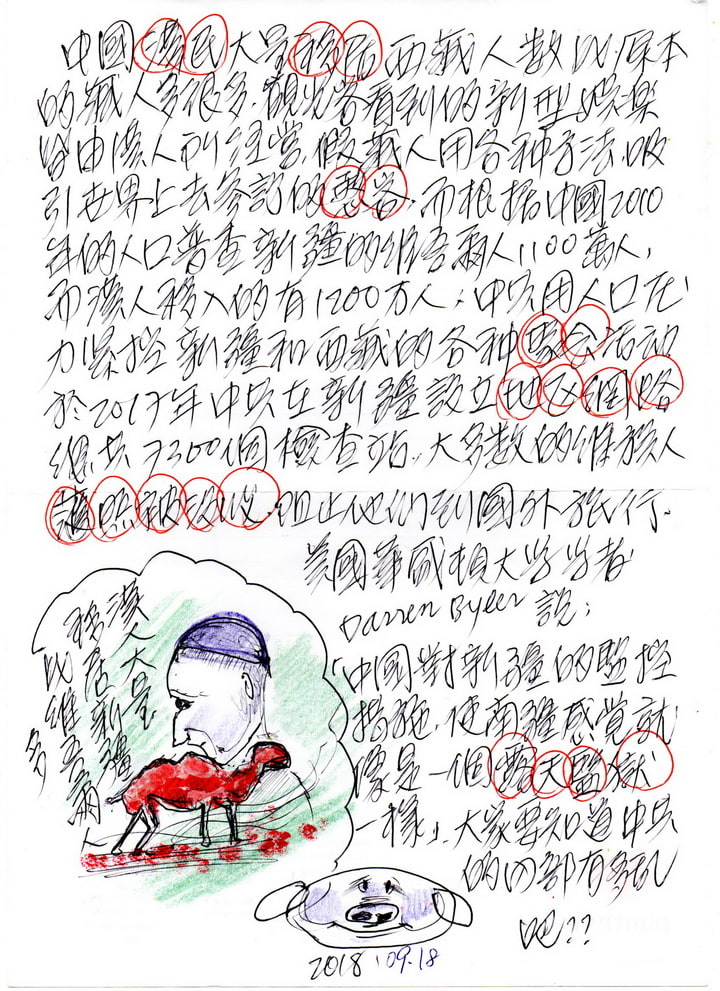 中國漢民大量移居西藏人数比原本
的藏人多很多.觀光客看到的新型娛樂
皆由漢人所經營,假藏人用各种方法,吸
引世界上去參訪的 客,而根据中國2010
年的人口普查新疆的维吾爾人1100萬人,
而漢人移入的有1200万人;中共用人口压
力緊控新疆和西藏的各种 会活动
於2017年中共在新疆設立地区網络
總共7300個檢查站..大多数的维族人
護照被沒收,阻止他们到國外旅行.
美國華盛頓大学学者
Darren Byler 說;
「中國對新疆的監控
措施,使南疆感覚就
像是一個露天監獄
一樣」,大家要知道中共
的内部有多乱
吧??
漢人大量
移居新疆
比维吾爾人
多
2018.09.18